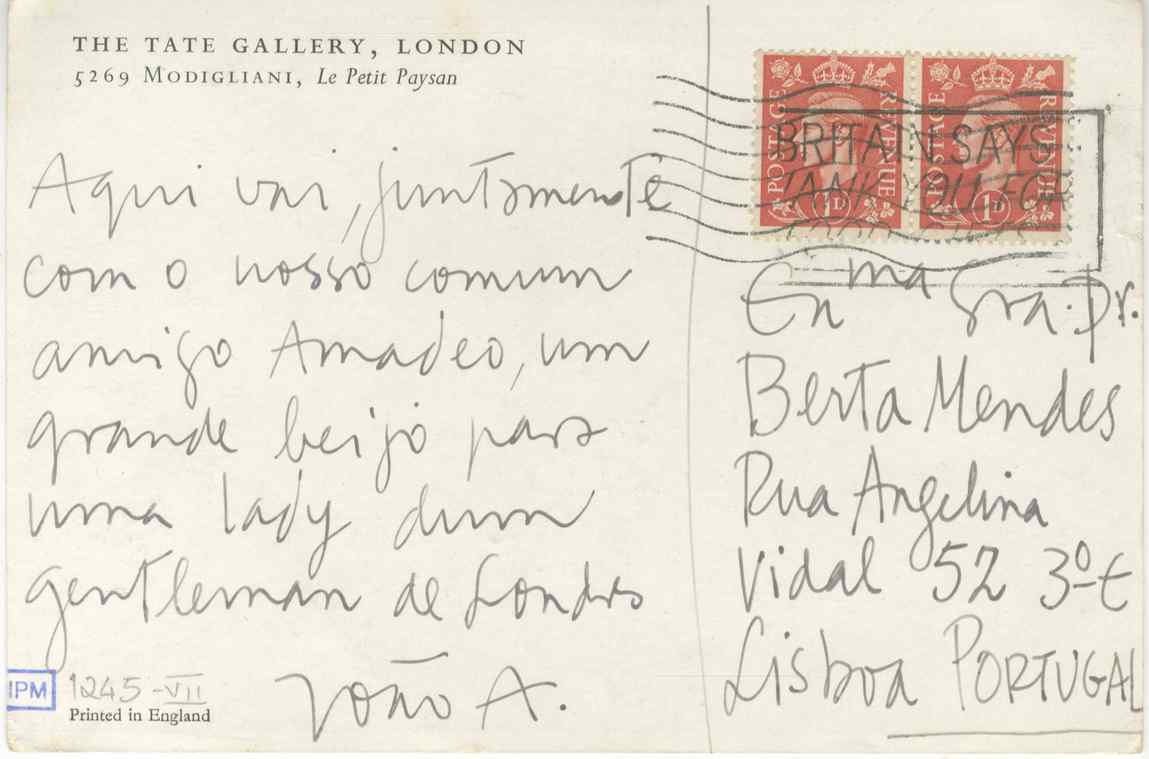 THE TATE GALLERY, LONDON
5269 MODIGLIANI, Le Petit Paysan
Aqui vai, juntamente
com o nosso comum
amigo Amadeo, um
grande beijo para
uma lady dum
gentleman de Londres
João A.
IPM
1245-VII
Printed in England
POSTAGE REVENUE
1D
POSTAGE REVENUE
1D
BRITAIN SAYS
YOU FOR
Enma Sra. Dr.
Berta Mendes
Rua Angelina
Vidal 52 3º-E
Lisboa PORTUGAL